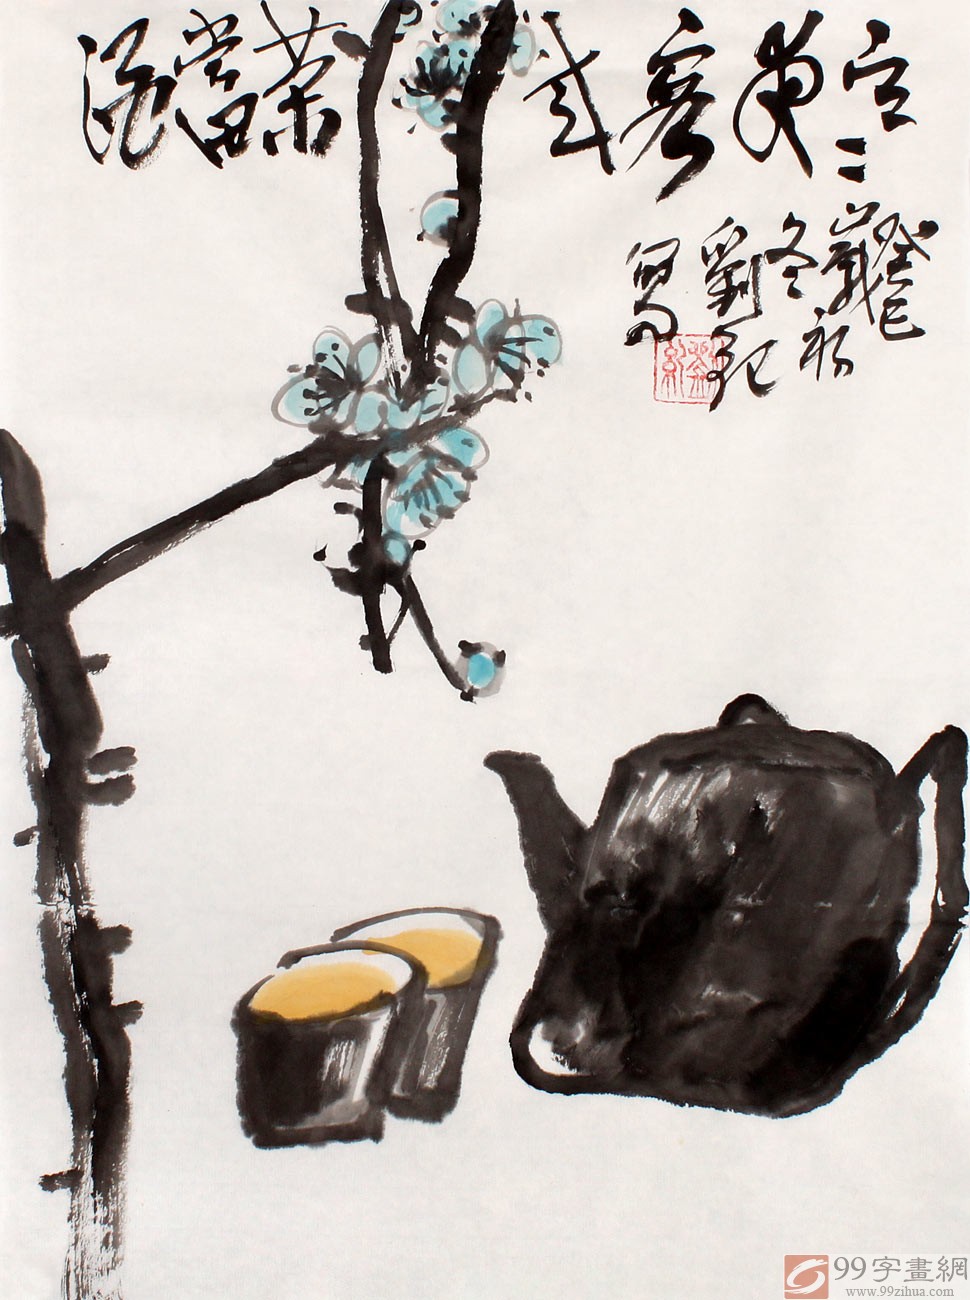 寒夜客來茶當酒
癸巳
歲
冬初
劉紀
寫
99字畫網
www.99zihua.com